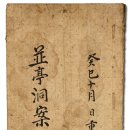 癸巳十月 日重
並亭洞案